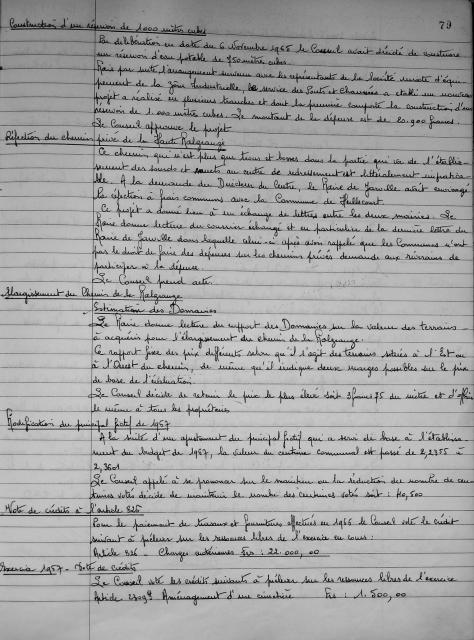 79
Construction d'un réservoir de 1000 mètres cubes
En délibération en date du 6 Novembre 1965 le Conseil avait décidé de construire
un réservoir d'eau potable de 750 mètres cubes.
Mais par suite l'arrangement survenu avec les représentants de la Société mixte d'équi-
pement de la Zone Industrielle, le service des Ponts et Chaussées a établi un nouveau
projet à réaliser en plusieurs tranches et dont la première comporte la construction d'un
réservoir de 1.000 mètres cubes. Le montant de la dépense est de francs.
Le Conseil approuve le projet
Réfection du chemin privé de la Haute Malgrange
Ce chemin qui n'est plus que trous et bosses dans la partie qui va de l'établis-
sement des sourds et muets au centre de redressement est littéralement impratica-
ble. A la demande du Directeur du Centre, le Maire de Jarville avait envisagé
la réfection à frais communs avec la Commune de
Ce projet a donné lieu à un échange de lettres entre les deux mairies. Le
Maire donne lecture du courrier échangé et en particulier de la dernière lettre du
Maire de Jarville dans laquelle celui-ci après avoir rappelé que les Communes n'ont
pas le droit de faire des dépenses sur les chemins privés demande aux riverains de
participer à la dépense.
Le Conseil prend acte.
Elargissement du Chemin de la Malgrange
Estimation des Domaines
Le Maire donne lecture du rapport des Domaines sur la valeur des terrains
à acquérir pour l'élargissement du chemin de la Malgrange.
Ce rapport fixe des prix différents selon qu'il s'agit des terrains situés à l'Est ou
à l'Ouest du chemin, de même qu'il indique deux marges possibles sur le prix
de base de l'évaluation.
Le Conseil décide de retenir le prix le plus élevé soit du mètre et d'offrir
le même à tous les propriétaires
Modification du principal fictif de 1967
A la suite d'un ajustement du principal fictif qui a servi de base à l'établisse-
ment du budget de 1967, la valeur du centime communal est passé de 2,2355 à
2,3601
Le Conseil appelé à se prononcer sur le maintien ou la réduction du nombre de cen-
times votés décide de maintenir le nombre des centimes votés soit : 40,500
Vote de crédits à l'article 826
Pour le paiement de travaux et fournitures effectués en 1966 le Conseil vote le crédit
suivant à prélever sur les ressources libres de l'exercice en cours :
Article 826 - Charges antérieures Frs : 22.000,00
Exercice 1967 - Vote de crédits
Le Conseil vote les crédits suivants à prélever sur les ressources libres de l'exercice
Article Aménagement d'un cimetière Frs : 1.500,00